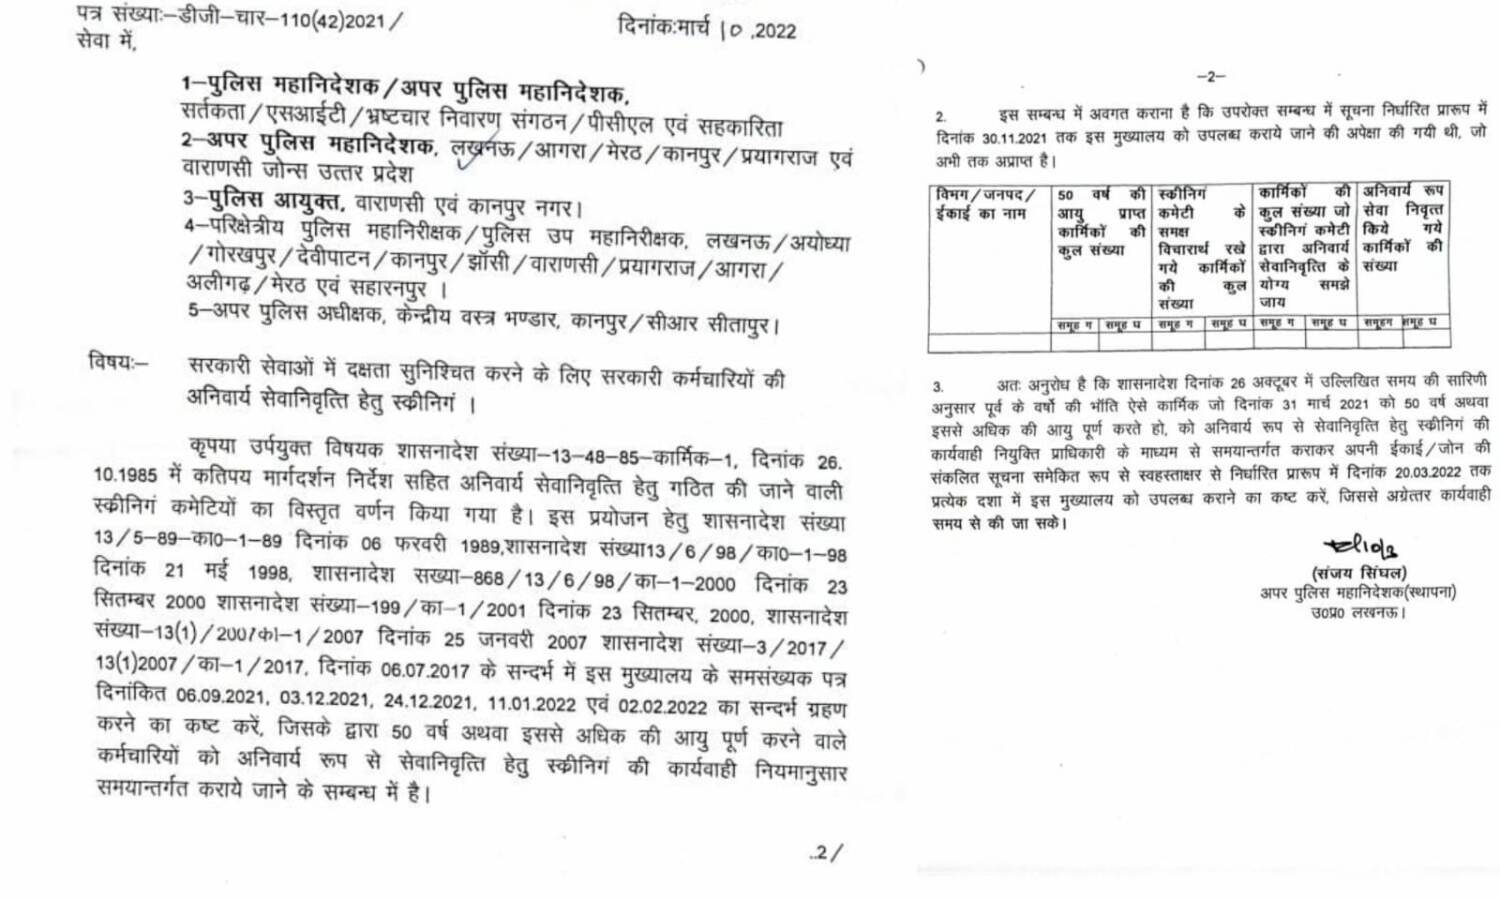 पत्र संख्याः–डीजी–चार–110(42)2021/
दिनांक:मार्च 10 ,2022
सेवा में,
1–पुलिस महानिदेशक/अपर पुलिस महानिदेशक,
सर्तकता/एसआईटी/भ्रष्टचार निवारण संगठन/पीसीएल एवं सहकारिता
2–अपर पुलिस महानिदेशक, लखनऊ/आगरा/मेरठ/कानपुर/प्रयागराज एवं
वाराणसी जोन्स उत्तर प्रदेश
3–पुलिस आयुक्त, वाराणसी एवं कानपुर नगर।
4–परिक्षेत्रीय पुलिस महानिरीक्षक/पुलिस उप महानिरीक्षक, लखनऊ/अयोध्या
/गोरखपुर/देवीपाटन/कानपुर/झॉसी/वाराणसी/प्रयागराज/आगरा/
अलीगढ़/मेरठ एवं सहारनपुर ।
5–अपर पुलिस अधीक्षक, केन्द्रीय वस्त्र भण्डार, कानपुर/सीआर सीतापुर।
विषयः– सरकारी सेवाओं में दक्षता सुनिश्चित करने के लिए सरकारी कर्मचारियों की
अनिवार्य सेवानिवृत्ति हेतु स्क्रीनिगं ।
कृपया उर्पयुक्त विषयक शासनादेश संख्या–13–48–85–कार्मिक–1, दिनांक 26.
10.1985 में कतिपय मार्गदर्शन निर्देश सहित अनिवार्य सेवानिवृत्ति हेतु गठित की जाने वाली
स्क्रीनिगं कमेटियों का विस्तृत वर्णन किया गया है। इस प्रयोजन हेतु शासनादेश संख्या
13/5–89–का0–1–89 दिनांक 06 फरवरी 1989,शासनादेश संख्या13/6/98/का0–1–98
दिनांक 21 मई 1998, शासनादेश सख्या–868/13/6/98/का–1–2000 दिनांक 23
सितम्बर 2000 शासनादेश संख्या–199/का–1/2001 दिनांक 23 सितम्बर, 2000, शासनादेश
संख्या–13(1)/2007का–1/2007 दिनांक 25 जनवरी 2007 शासनादेश संख्या–3/2017/
13(1)2007/का–1/2017, दिनांक 06.07.2017 के सन्दर्भ में इस मुख्यालय के समसंख्यक पत्र
दिनांकित 06.09.2021, 03.12.2021, 24.12.2021, 11.01.2022 एवं 02.02.2022 का सन्दर्भ ग्रहण
करने का कष्ट करें, जिसके द्वारा 50 वर्ष अथवा इससे अधिक की आयु पूर्ण करने वाले
कर्मचारियों को अनिवार्य रूप से सेवानिवृत्ति हेतु स्क्रीनिगं की कार्यवाही नियमानुसार
समयान्तर्गत कराये जाने के सम्बन्ध में है।
..2/
–2–
2. इस सम्बन्ध में अवगत कराना है कि उपरोक्त सम्बन्ध में सूचना निर्धारित प्रारूप में
दिनांक 30.11.2021 तक इस मुख्यालय को उपलब्ध कराये जाने की अपेक्षा की गयी थी, जो
अभी तक अप्राप्त है।
विभग/जनपद/
ईकाई का नाम
50 वर्ष की
आयु प्राप्त
कार्मिकों की
कुल संख्या
स्क्रीनिगं
कमेटी के
समक्ष
विचारार्थ रखे
गये कार्मिकों
की कुल
संख्या
कार्मिकों की
कुल संख्या जो
स्क्रीनिगं कमेटी
द्वारा अनिवार्य
सेवानिवृत्ति के
योग्य समझे
जाय
अनिवार्य रूप
सेवा निवृत्त
किये गये
कार्मिकों की
संख्या
समूह ग समूह घ समूह ग समूह घ समूह ग समूह घ समूहग समूह घ
3. अतः अनुरोध है कि शासनादेश दिनांक 26 अक्टूबर में उल्लिखित समय की सारिणी
अनुसार पूर्व के वर्षो की भॉति ऐसे कार्मिक जो दिनांक 31 मार्च 2021 को 50 वर्ष अथवा
इससे अधिक की आयु पूर्ण करते हो, को अनिवार्य रूप से सेवानिवृत्ति हेतु स्क्रीनिगं की
कार्यवाही नियुक्ति प्राधिकारी के माध्यम से समयान्तर्गत कराकर अपनी ईकाई/जोन की
संकलित सूचना समेकित रूप से स्वहस्ताक्षर से निर्धारित प्रारूप में दिनांक 20.03.2022 तक
प्रत्येक दशा में इस मुख्यालय को उपलब्ध कराने का कष्ट करें, जिससे अग्रेत्तर कार्यवाही
समय से की जा सके।
(संजय सिंघल)
अपर पुलिस महानिदेशक(स्थापना)
उ0प्र0 लखनऊ।